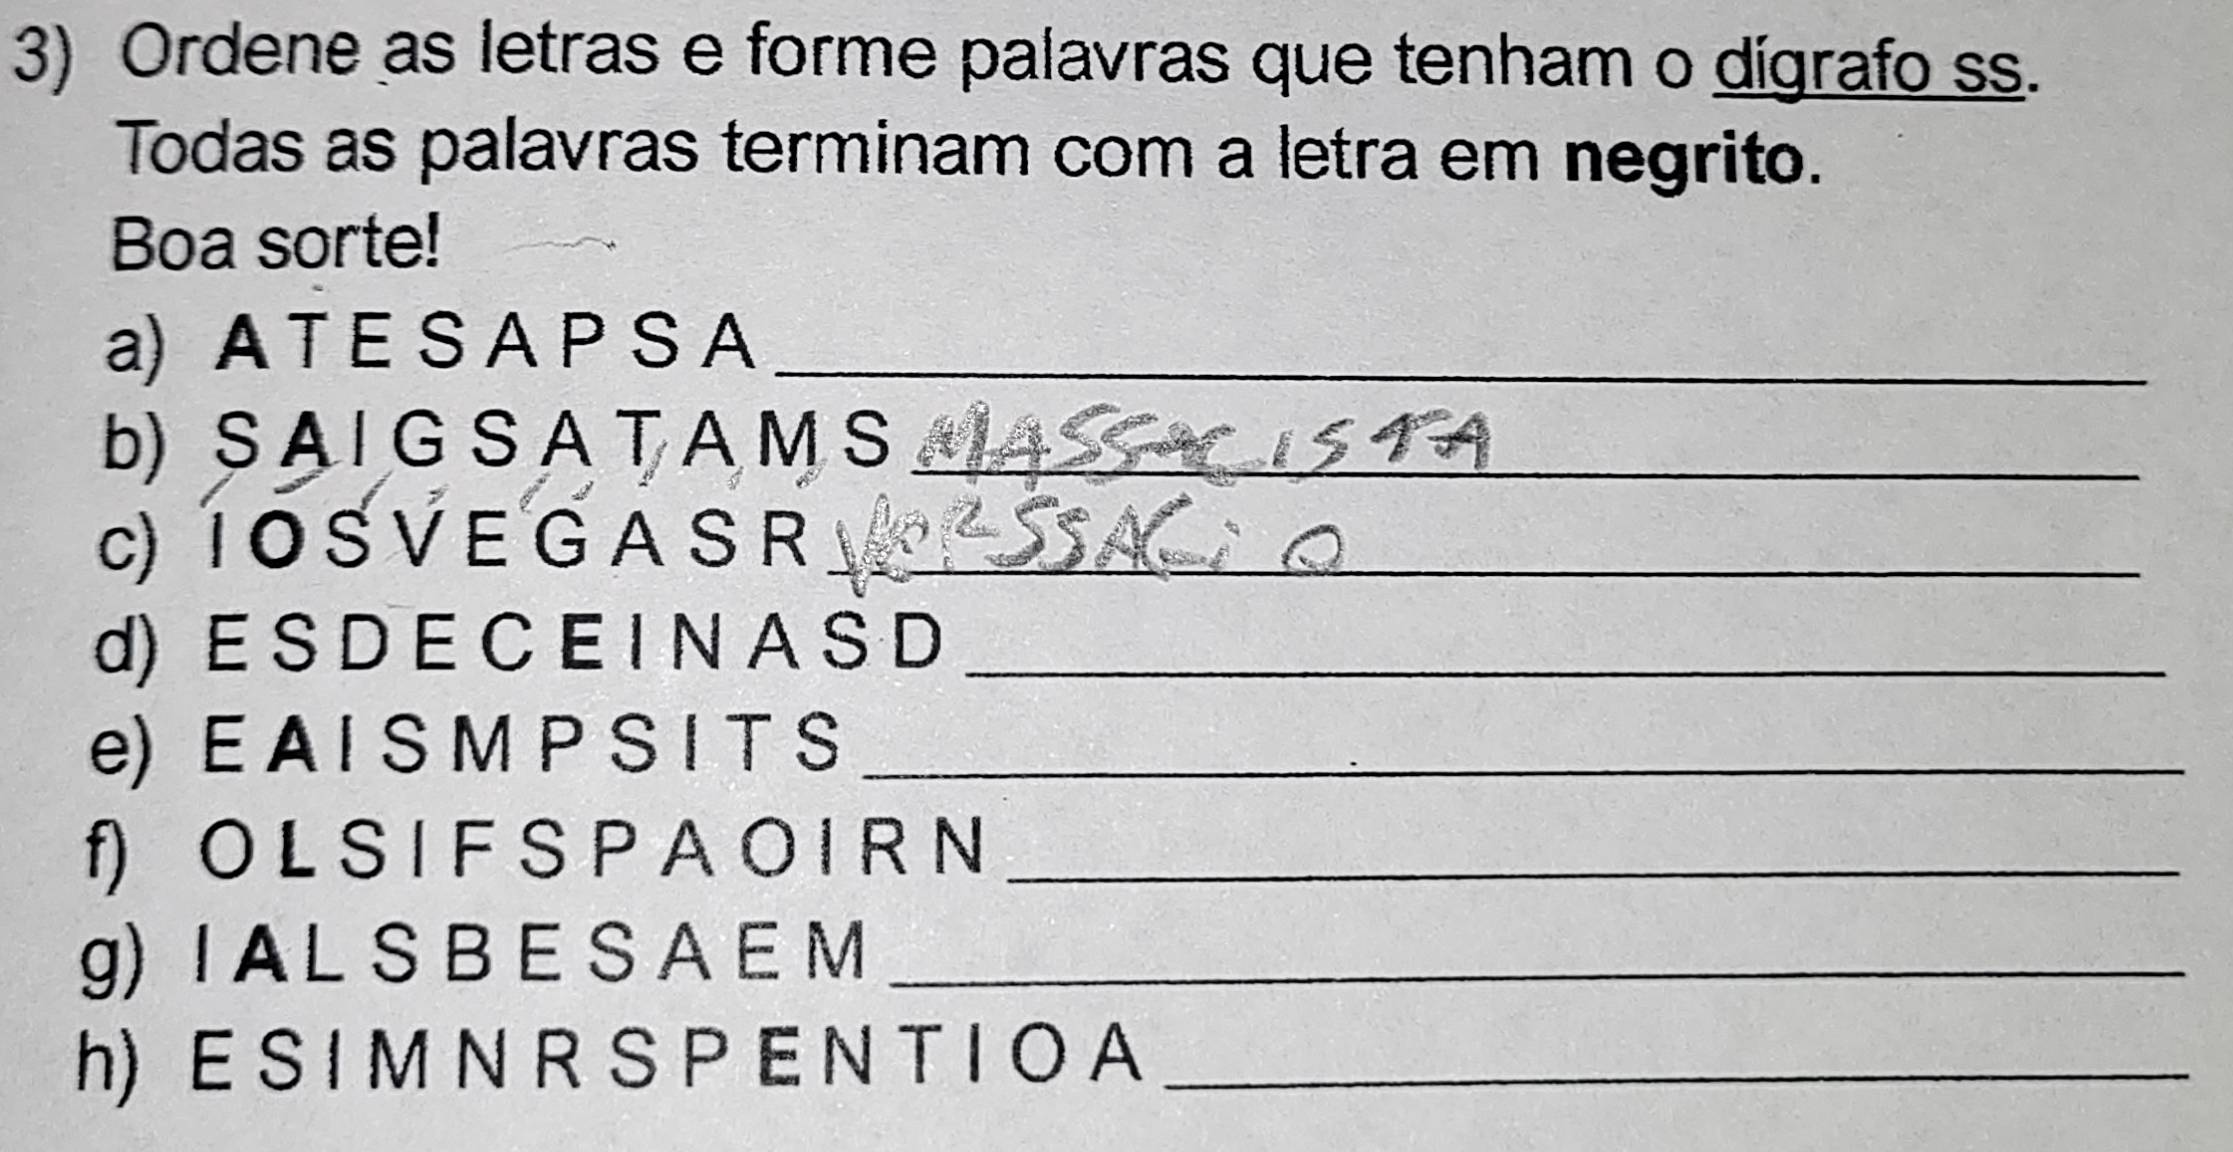 3) Ordene as letras e forme palavras que tenham o dígrafo ss.
Todas as palavras terminam com a letra em negrito.
Boa sorte!
a) A T E S A P S A
b) S A I G S A T A M S MASSAGISTA
c) I O S V E G A S R VERSSAGIO
d) E S D E C E I N A S D
e) E A I S M P S I T S
f) O L S I F S P A O I R N
g) I A L S B E S A E M
h) E S I M N R S P E N T I O A